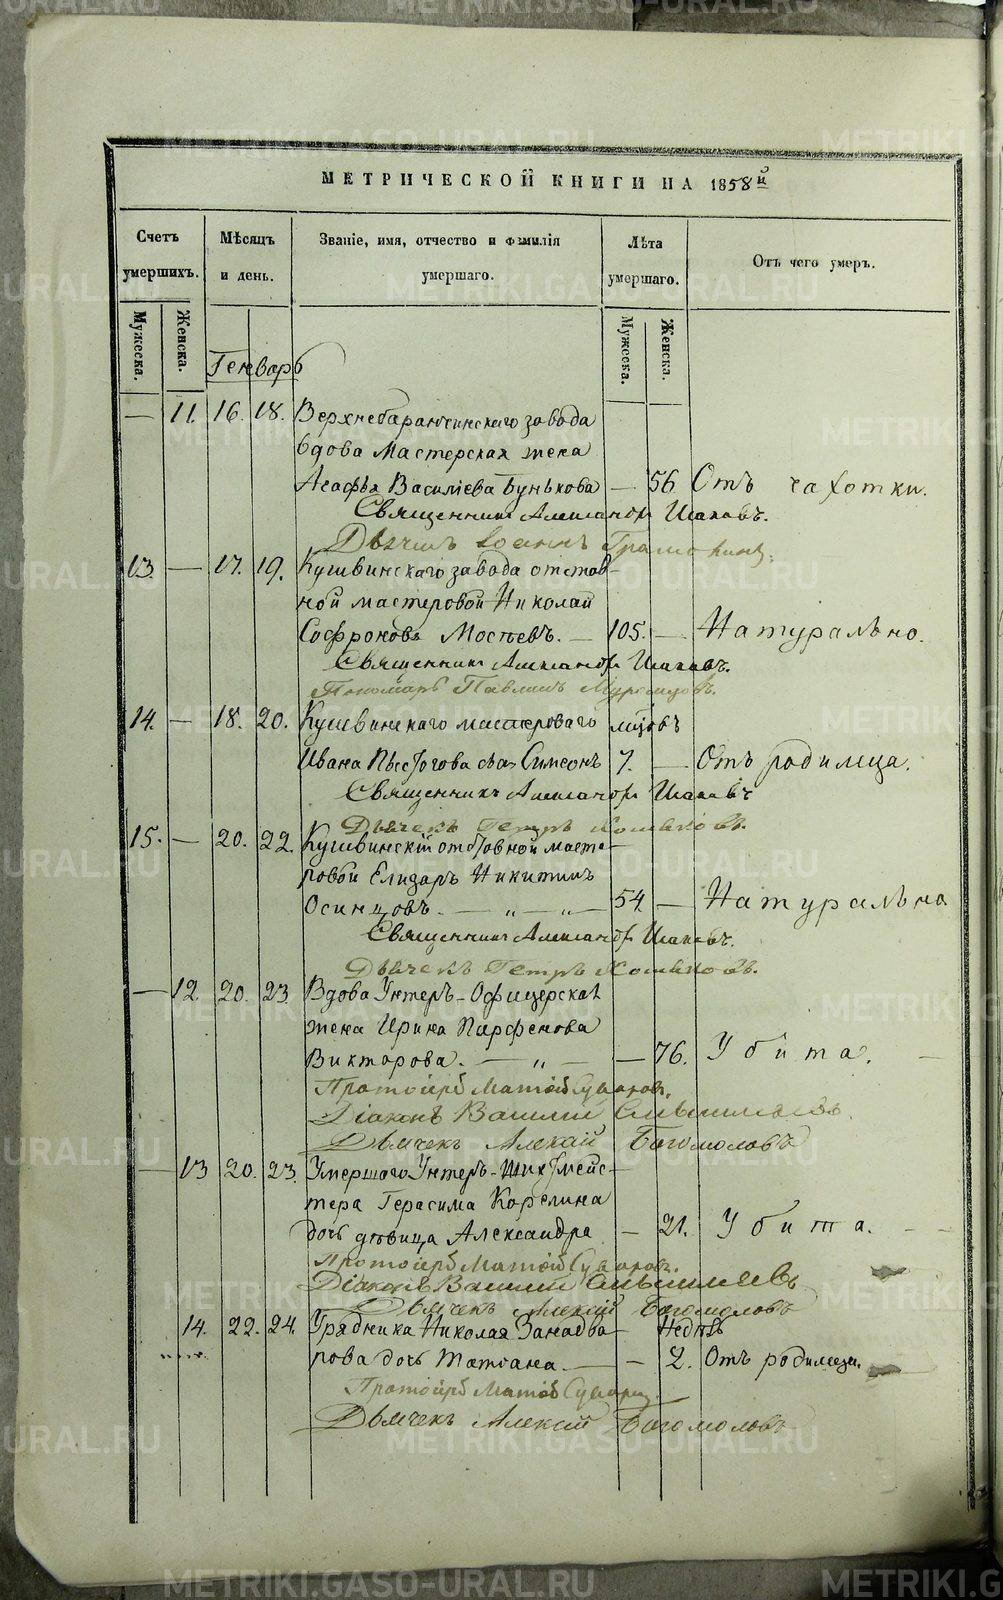 МЕТРИЧЕСКОЙ КНИГИ НА 1858й
Счетъ умершихъ.
Мѣсяцъ и день.
Званіе, имя, отчество и фамилія умершаго.
Лѣта умершаго.
Отъ чего умеръ.
Мужеска. Женска.
Мужеска. Женска.
Генварь
— 11. 16. 18. Верхнебаранчинскаго завода
вдова Мастерская жена
Агафья Василіева Бунькова — 56 Отъ чахотки.
Священникъ Александръ
Дьячекъ Іоаннъ
13. — 17. 19. Кушвинскаго завода отстав-
ной мастеровой Николай
Софроновъ — 105. — Натурально.
Священникъ Александръ
Пономарь Павлинъ
14. — 18. 20. Кушвинскаго мастероваго мѣсяцовъ
Ивана сынъ Симеонъ 7. — Отъ родимца.
Священникъ Александръ
Дьячекъ Петръ Хомяковъ.
15. — 20. 22. Кушвинскій отставной масте-
ровой Елизаръ Никитинъ
Осинцовъ. — „ — „ — 54. — Натурально
Священникъ Александръ
Дьячекъ Петръ Хомяковъ.
— 12. 20. 23. Вдова Унтеръ-Офицерская
жена Ирина Парфенова
Викторова. — „ — — 76. Убита.
Протоіерей
Діаконъ Василій
Дьячекъ Алексій Богомоловъ
— 13 20. 23. Умершаго Унтеръ-Шихтмейс-
тера Герасима Корелина
дочь дѣвица Александра — 21. Убита.
Протоіерей
Діаконъ Василій
Дьячекъ Алексій Богомоловъ
14. 22. 24. Урядника Николая Занадва- Недѣль
рова дочь Татіана. — — 2. Отъ родимца.
Протоіерей
Дьячекъ Алексій Богомоловъ
METRIKI.GASO-URAL.RU